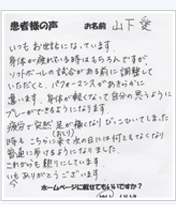 患者様の声 お名前 山下 愛
いつもお世話になっています。
身体が疲れている時はもちろんですが、
ソフトボールの試合がある前に調整して
いただくと、パフォーマンスがあきらかに
違います。身体が軽くなって自分の思うように
プレーができるようになります。
突然 足が痛くなり びっこないてしまった
(おしり)
時も こちらに来て次の日には何ともなくなり
普通に歩けるようになりました。
これからも頼りにしています。
いつもありがとうございます。
ホームページに載せてもいいですか?